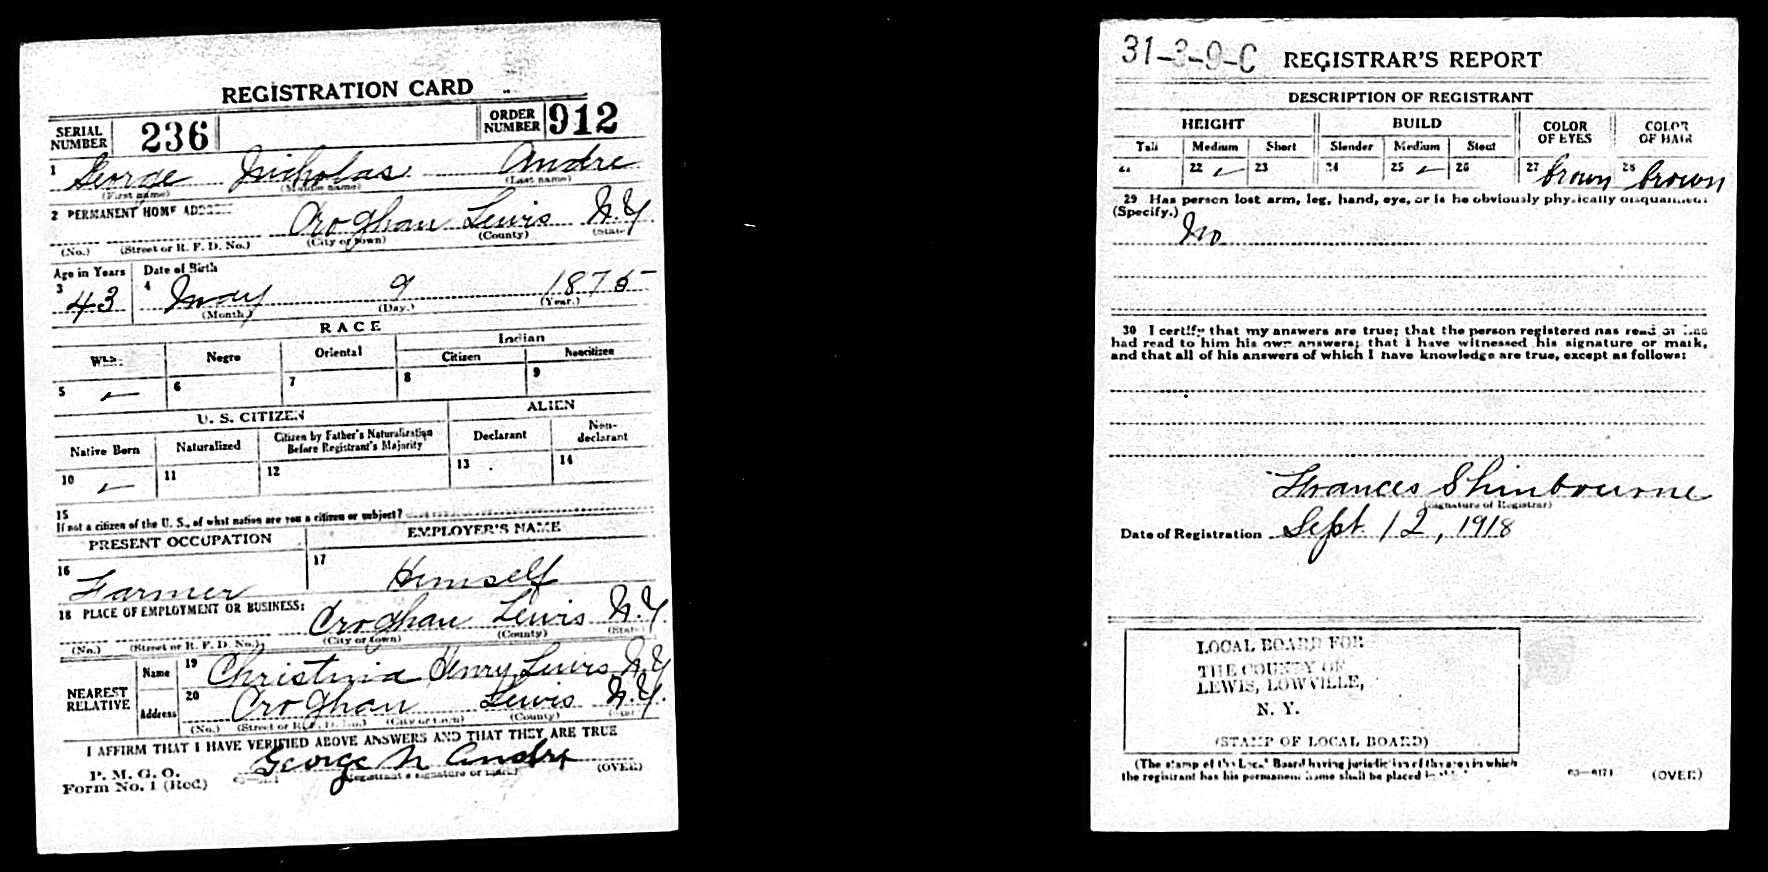 REGISTRATION CARD
SERIAL NUMBER 236 ORDER NUMBER 912
1 George Nicholas Andre
(First name) (Middle name) (Last name)
2 PERMANENT HOME ADDRESS
Croghan Lewis N.Y.
(No.) (Street or R. F. D. No.) (City or town) (County) (State)
Age in Years Date of Birth
3 43 4 May 9 1875
(Month.) (Day.) (Year.)
RACE
White Negro Oriental Indian
Citizen Noncitizen
5 ✓ 6 7 8 9
U. S. CITIZEN ALIEN
Native Born Naturalized Citizen by Father's Naturalization Before Registrant's Majority Declarant Non-declarant
10 ✓ 11 12 13 14
15
If not a citizen of the U. S., of what nation are you a citizen or subject?
PRESENT OCCUPATION EMPLOYER'S NAME
16 Farmer 17 Himself
18 PLACE OF EMPLOYMENT OR BUSINESS:
Croghan Lewis N.Y.
(No.) (Street or R. F. D. No.) (City or town) (County) (State)
NEAREST RELATIVE
Name 19 Christina Henry Lewis N.Y.
Address 20 Croghan Lewis N.Y.
(No.) (Street or R. F. D. No.) (City or town) (County) (State)
I AFFIRM THAT I HAVE VERIFIED ABOVE ANSWERS AND THAT THEY ARE TRUE
P. M. G. O.
Form No. 1 (Red) George N Andre
(Registrant's signature or mark) (OVER)
31-3-9-C REGISTRAR'S REPORT
DESCRIPTION OF REGISTRANT
HEIGHT BUILD COLOR OF EYES COLOR OF HAIR
Tall Medium Short Slender Medium Stout
21 22 ✓ 23 24 25 ✓ 26 27 brown 28 brown
29 Has person lost arm, leg, hand, eye, or is he obviously physically disqualified?
(Specify.)
No
30 I certify that my answers are true; that the person registered has read or has
had read to him his own answers; that I have witnessed his signature or mark,
and that all of his answers of which I have knowledge are true, except as follows:
Frances Shinbourne
(Signature of Registrar)
Date of Registration Sept. 12, 1918
LOCAL BOARD FOR
THE COUNTY OF
LEWIS, LOWVILLE,
N. Y.
(STAMP OF LOCAL BOARD)
(The stamp of the Local Board having jurisdiction of the area in which
the registrant has his permanent home shall be placed in this
03-6171 (OVER)